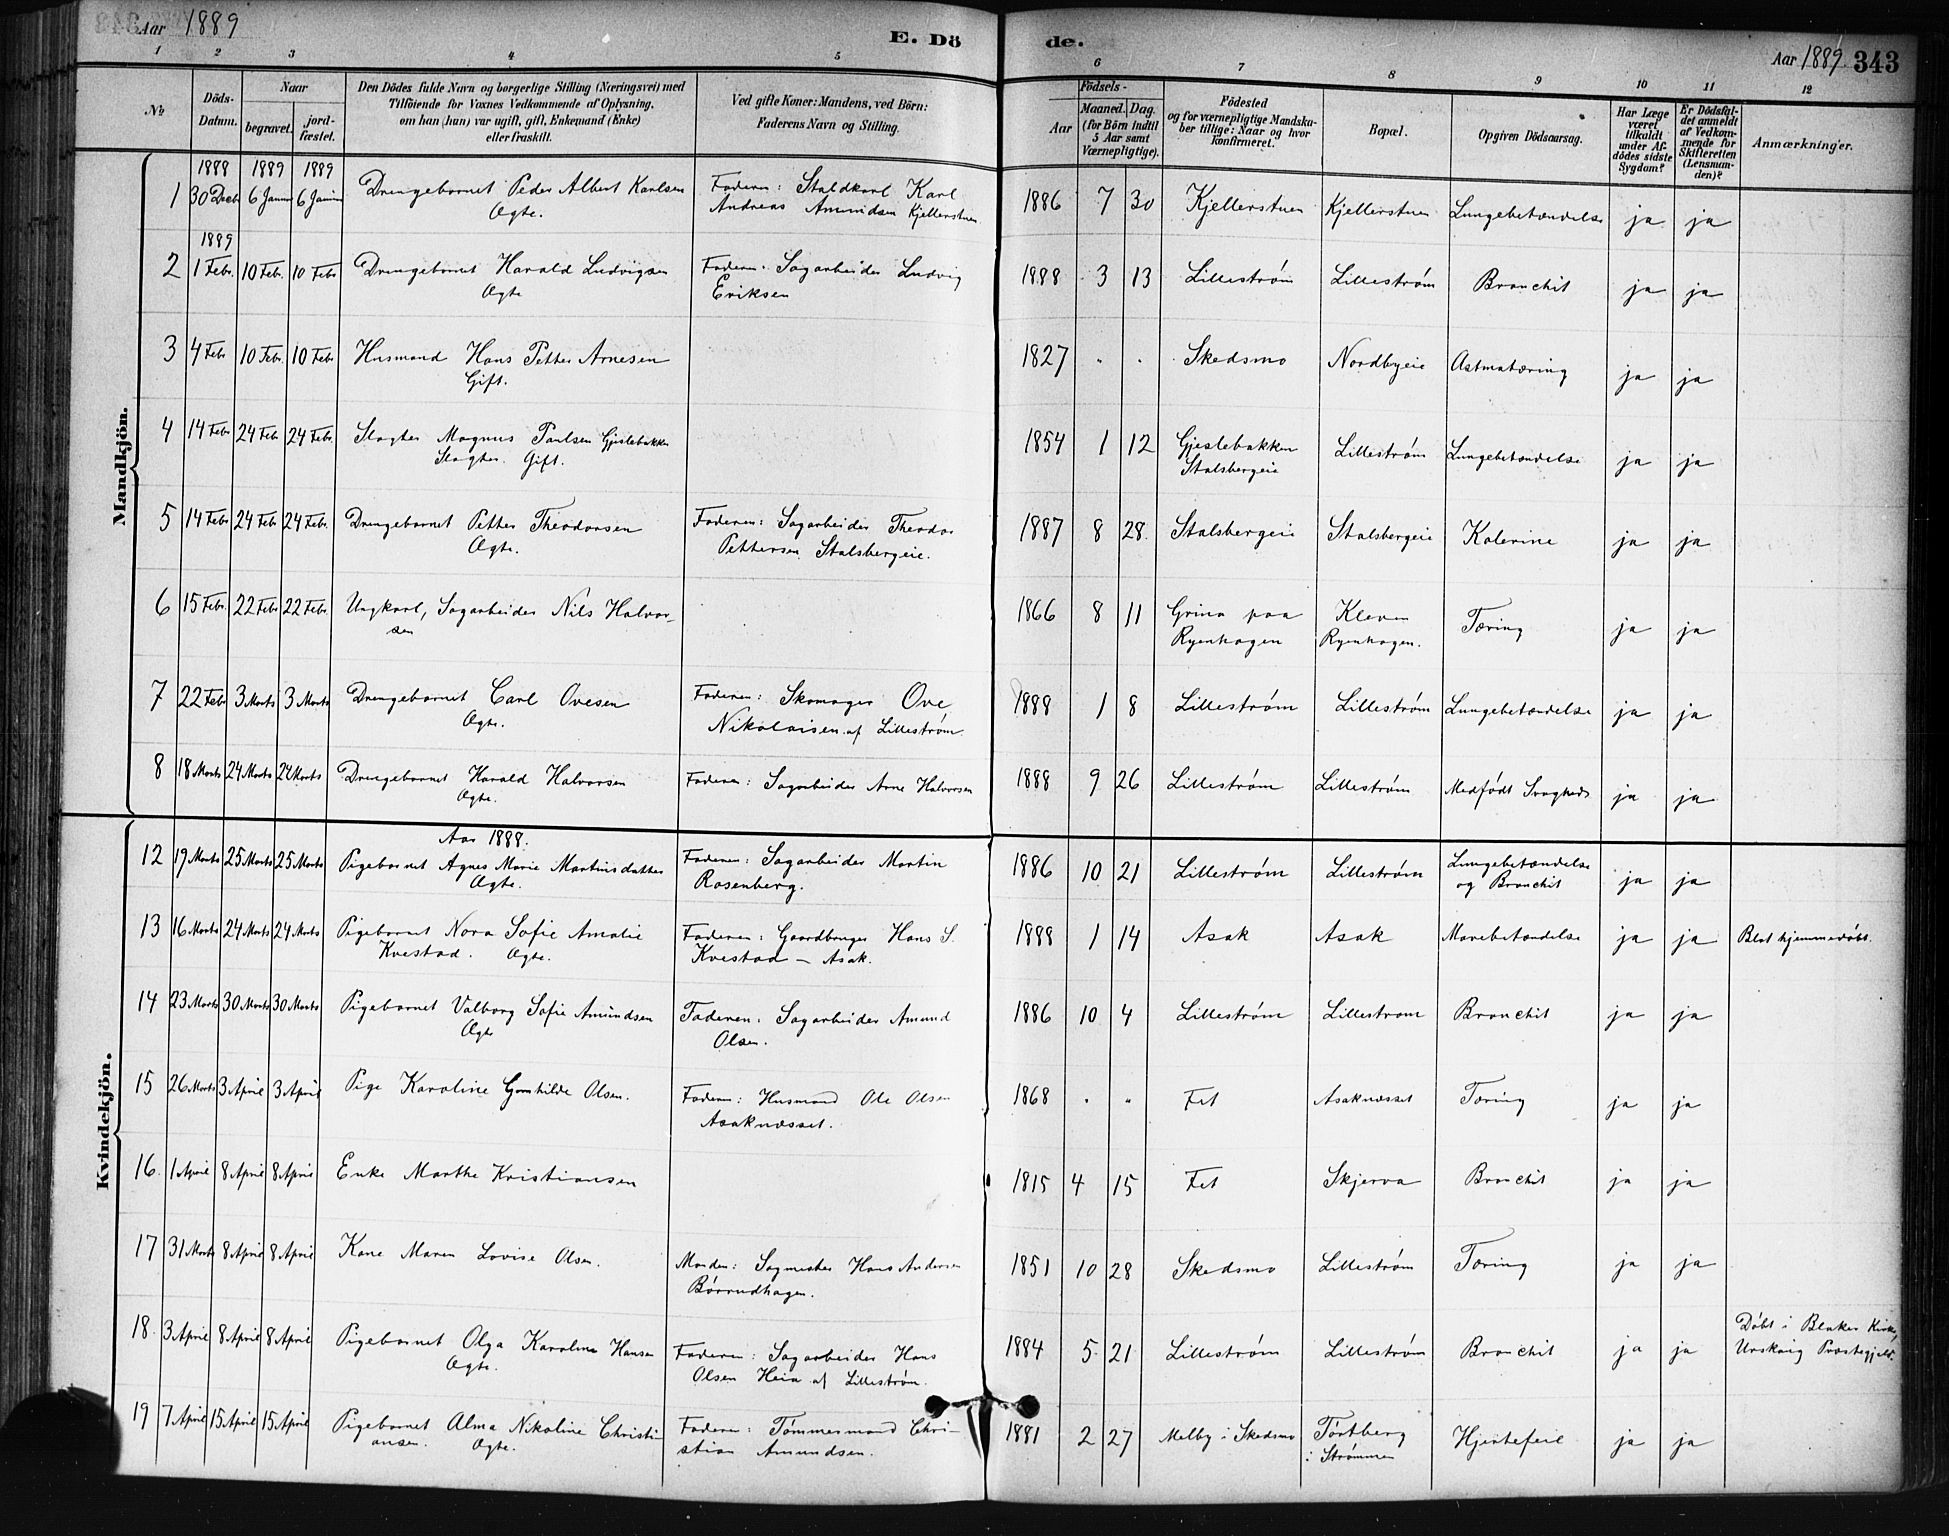 Aar 1889
E. Dö
de.
Aar 1889. 343
1 2 3 4 5 6 7 8 9 10 11 12
No
Döds-Datum.
Naar
begravet.
jord-fæstet.
Den Dödes fulde Navn og borgerlige Stilling (Næringsvei) med
Tilföiende for Voxnes Vedkommende af Oplysning.
om han (hun) var ugift, gift, Enkemand (Enke)
eller fraskilt.
Ved gifte Koner: Mandens, ved Börn:
Faderens Navn og Stilling.
Födsels-
Aar
Maaned. Dag.
(for Börn indtil
5 Aar samt
Værnepligtige).
Födested
og for værnepligtige Mandskaber tillige: Naar og hvor
konfirmeret.
Bopæl.
Opgiven Dödsaarsag.
Har Læge
været
tilkaldt
under Afdödes sidste
Sygdom?
Er Dödsfaldet anmeldt
af Vedkommende for
Skifteretten
(Lensmanden)?
Anmærkninger.
Mandkjön.
1888 1889 1889
1 30 Decbr 6 Januar 6 Januar Drengebarnet Peder Albert Karlsen Faderen: Staldkarl Karl 1886 7 30 Kjellerstuen Kjellerstuen Lungebetændelse ja ja
Ægte. Andreas Amundsen Kjellerstuen
1889
2 1 Febr. 10 Febr. 10 Febr Drengebarnet Harald Ludvigsen Faderen: Sagarbeider Ludvig 1888 3 13 Lillestrøm Lillestrøm Bronchit ja ja
Ægte Eriksen
3 4 Febr 10 Febr. 10 Febr Husmand Hans Petter Arnesen 1827 " " Skedsmo Nordbyeie Astmatæring ja ja
Gift.
4 14 Febr 24 Febr 24 Febr. Slagter Magnus Paulsen Gjeslebakken 1854 1 12 Gjeslebakken Lillestrøm Lungebetændelse ja ja
Slagter. Gift. Stalsbergeie
5 14 Febr 24 Febr 24 Febr. Drengebarnet Petter Theodorsen Faderen: Sagarbeider Theodor 1887 8 28. Stalsbergeie Stalsbergeie Kolerine ja ja
Ægte. Pettersen Stalsbergeie.
6 15 Febr. 22 Febr 22 Febr. Ungkarl, Sagarbeider Nils Halvor- 1866 8 11 Grina paa Kleven Tæring ja ja
sen Ryenhagen Ryenhagen.
7 22 Febr 3 Marts 3 Marts Drengebarnet Carl Ovesen Faderen: Skomager Ove 1888 1 8 Lillestrøm Lillestrøm Lungebetændelse ja ja
Ægte. Nikolaisen af Lillestrøm.
8 18 Marts 24 Marts 24 Marts Drengebarnet Harald Halvorsen Faderen: Sagarbeider Arne Halvorsen 1888 9 26 Lillestrøm Lillestrøm Medfødt Svaghed ja ja
Ægte.
Kvindekjön.
Aar 1888.
12 19 Marts 25 Marts 25 Marts Pigebarnet Agnes Marie Martinsdatter Faderen: Sagarbeider Martin 1886 10 21 Lillestrøm Lillestrøm Lungebetændelse ja ja
Ægte. Rosenberg. og Bronchit
13 16 Marts 24 Marts 24 Marts Pigebarnet Nora Sofie Amalie Faderen: Gaardbruger Hans S. 1888 1 14 Asak Asak Mavebetændelse ja ja Blot hjemmedøbt.
Kvestad. Ægte. Kvestad – Asak.
14 23 Marts 30 Marts 30 Marts Pigebarnet Valborg Sofie Amundsen Faderen: Sagarbeider Amund 1886 10 4 Lillestrøm Lillestrøm Bronchit ja ja
Ægte Olsen.
15 26 Marts 3 April 3 April Pige Karoline Gunhilde Olsen. Faderen: Husmand Ole Olsen 1868 " " Fet Asaknæsset Tæring ja ja
Asaknæsset.
16. 1 April 8 April 8 April Enke Marthe Kristiansen 1815 4 15 Fet Skjerva Bronchit ja ja
17 31 Marts 8 April 8 April Kone Maren Lovise Olsen. Manden: Sagmester Hans Andersen 1851 10 28 Skedsmo Lillestrøm Tæring ja ja
Børrudhagen.
18. 3 April 8 April 8 April Pigebarnet Olga Karoline Hansen Faderen: Sagarbeider Hans 1884 5 21 Lillestrøm Lillestrøm Bronchit ja ja Døbt i Blaker Kirke,
Ægte. Olsen Heia af Lillestrøm. Urskoug Præstegjeld.
19 7 April 15 April 15 April Pigebarnet Alma Nikoline Christi- Faderen: Tømmermand Chri- 1881 2 27 Melby i Skedsmo Tørtberg Hjertefeil ja ja
ansen. Ægte. stian Amundsen. i Strømmen